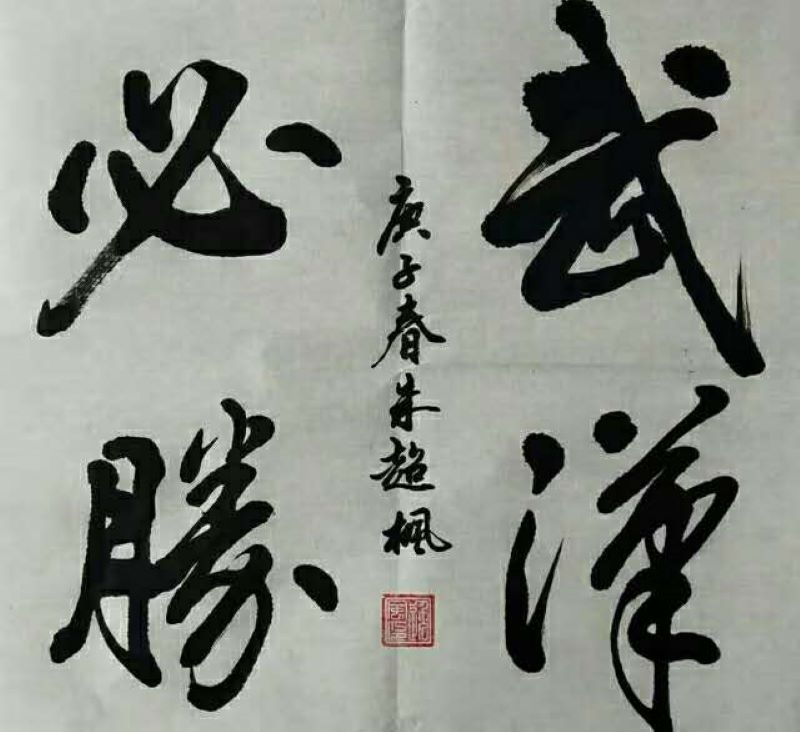 武漢
必勝
庚子春朱超楓